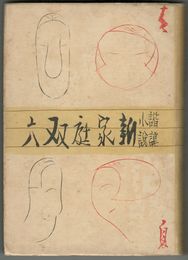 諧謔
小説
新家庭双六
夏